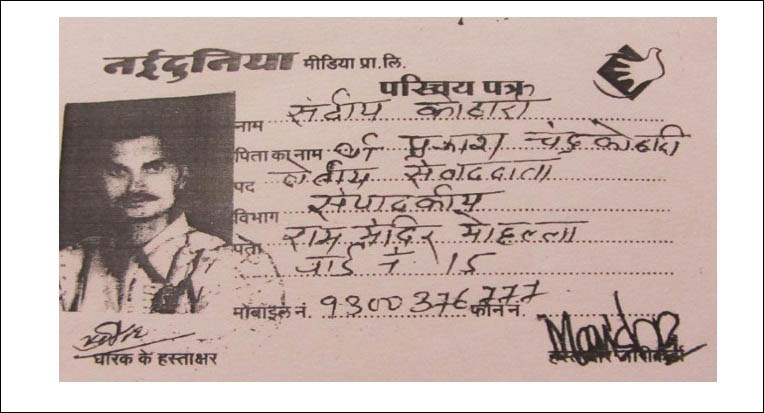 नईदुनिया मीडिया प्रा.लि.
परिचय पत्र
नाम संदीप कोठारी
पिता का नाम श्री प्रकाश चंद्र कोठारी
पद क्षेत्रीय संवाददाता
विभाग संपादकीय
पता राम मंदिर मोहल्ला
वार्ड नं 15
मोबाइल नं. 9300376777 फोन नं.
धारक के हस्ताक्षर